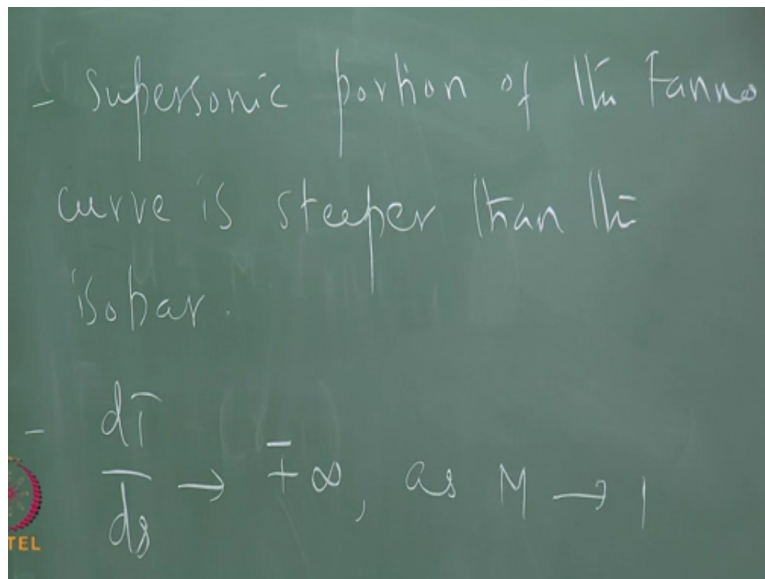 - Supersonic portion of the Fanno
curve is steeper than the
isobar.
- dT/ds → ∓∞, as M → 1
TEL